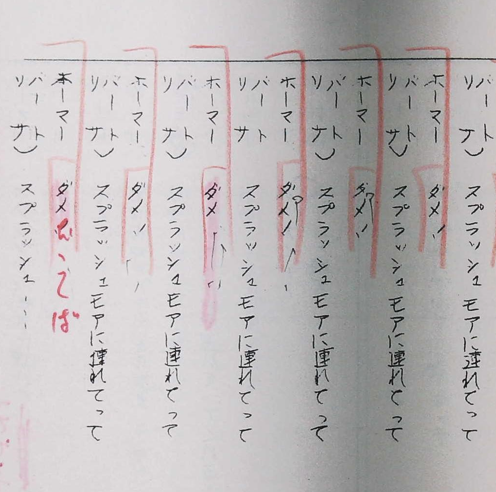 バート
リサ スプラッシュモアに連れてって
ホーマー ダメ!
バート
リサ スプラッシュモアに連れてって
ホーマー ダメ!!
バート
リサ スプラッシュモアに連れてって
ホーマー ダメ!!
バート
リサ スプラッシュモアに連れてって
ホーマー ダメ!!
バート
リサ スプラッシュモアに連れてって
ホーマー ダメ!!
バート
リサ スプラッシュモアに連れてって
ホーマー ダメだってば
バート
リサ スプラッシュ……